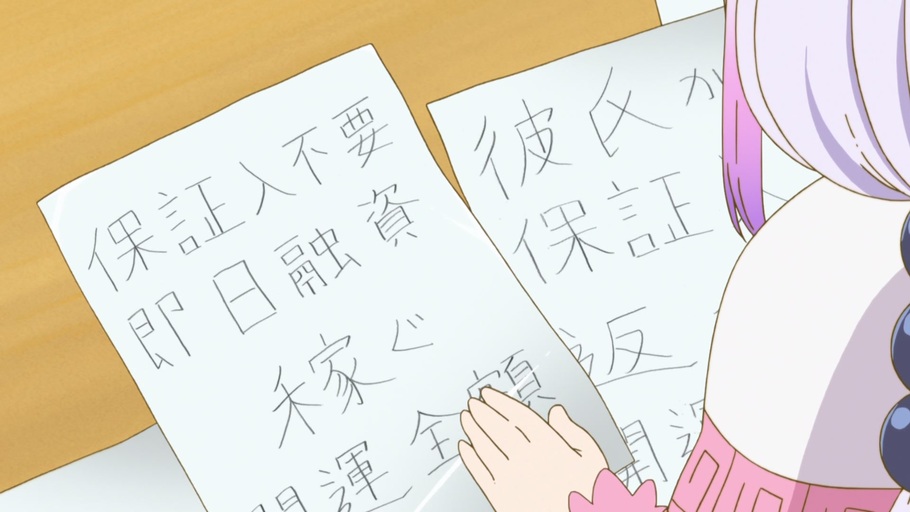 保証人不要
即日融資
稼ぐ
開運 全額
彼氏が
保証
返
開運